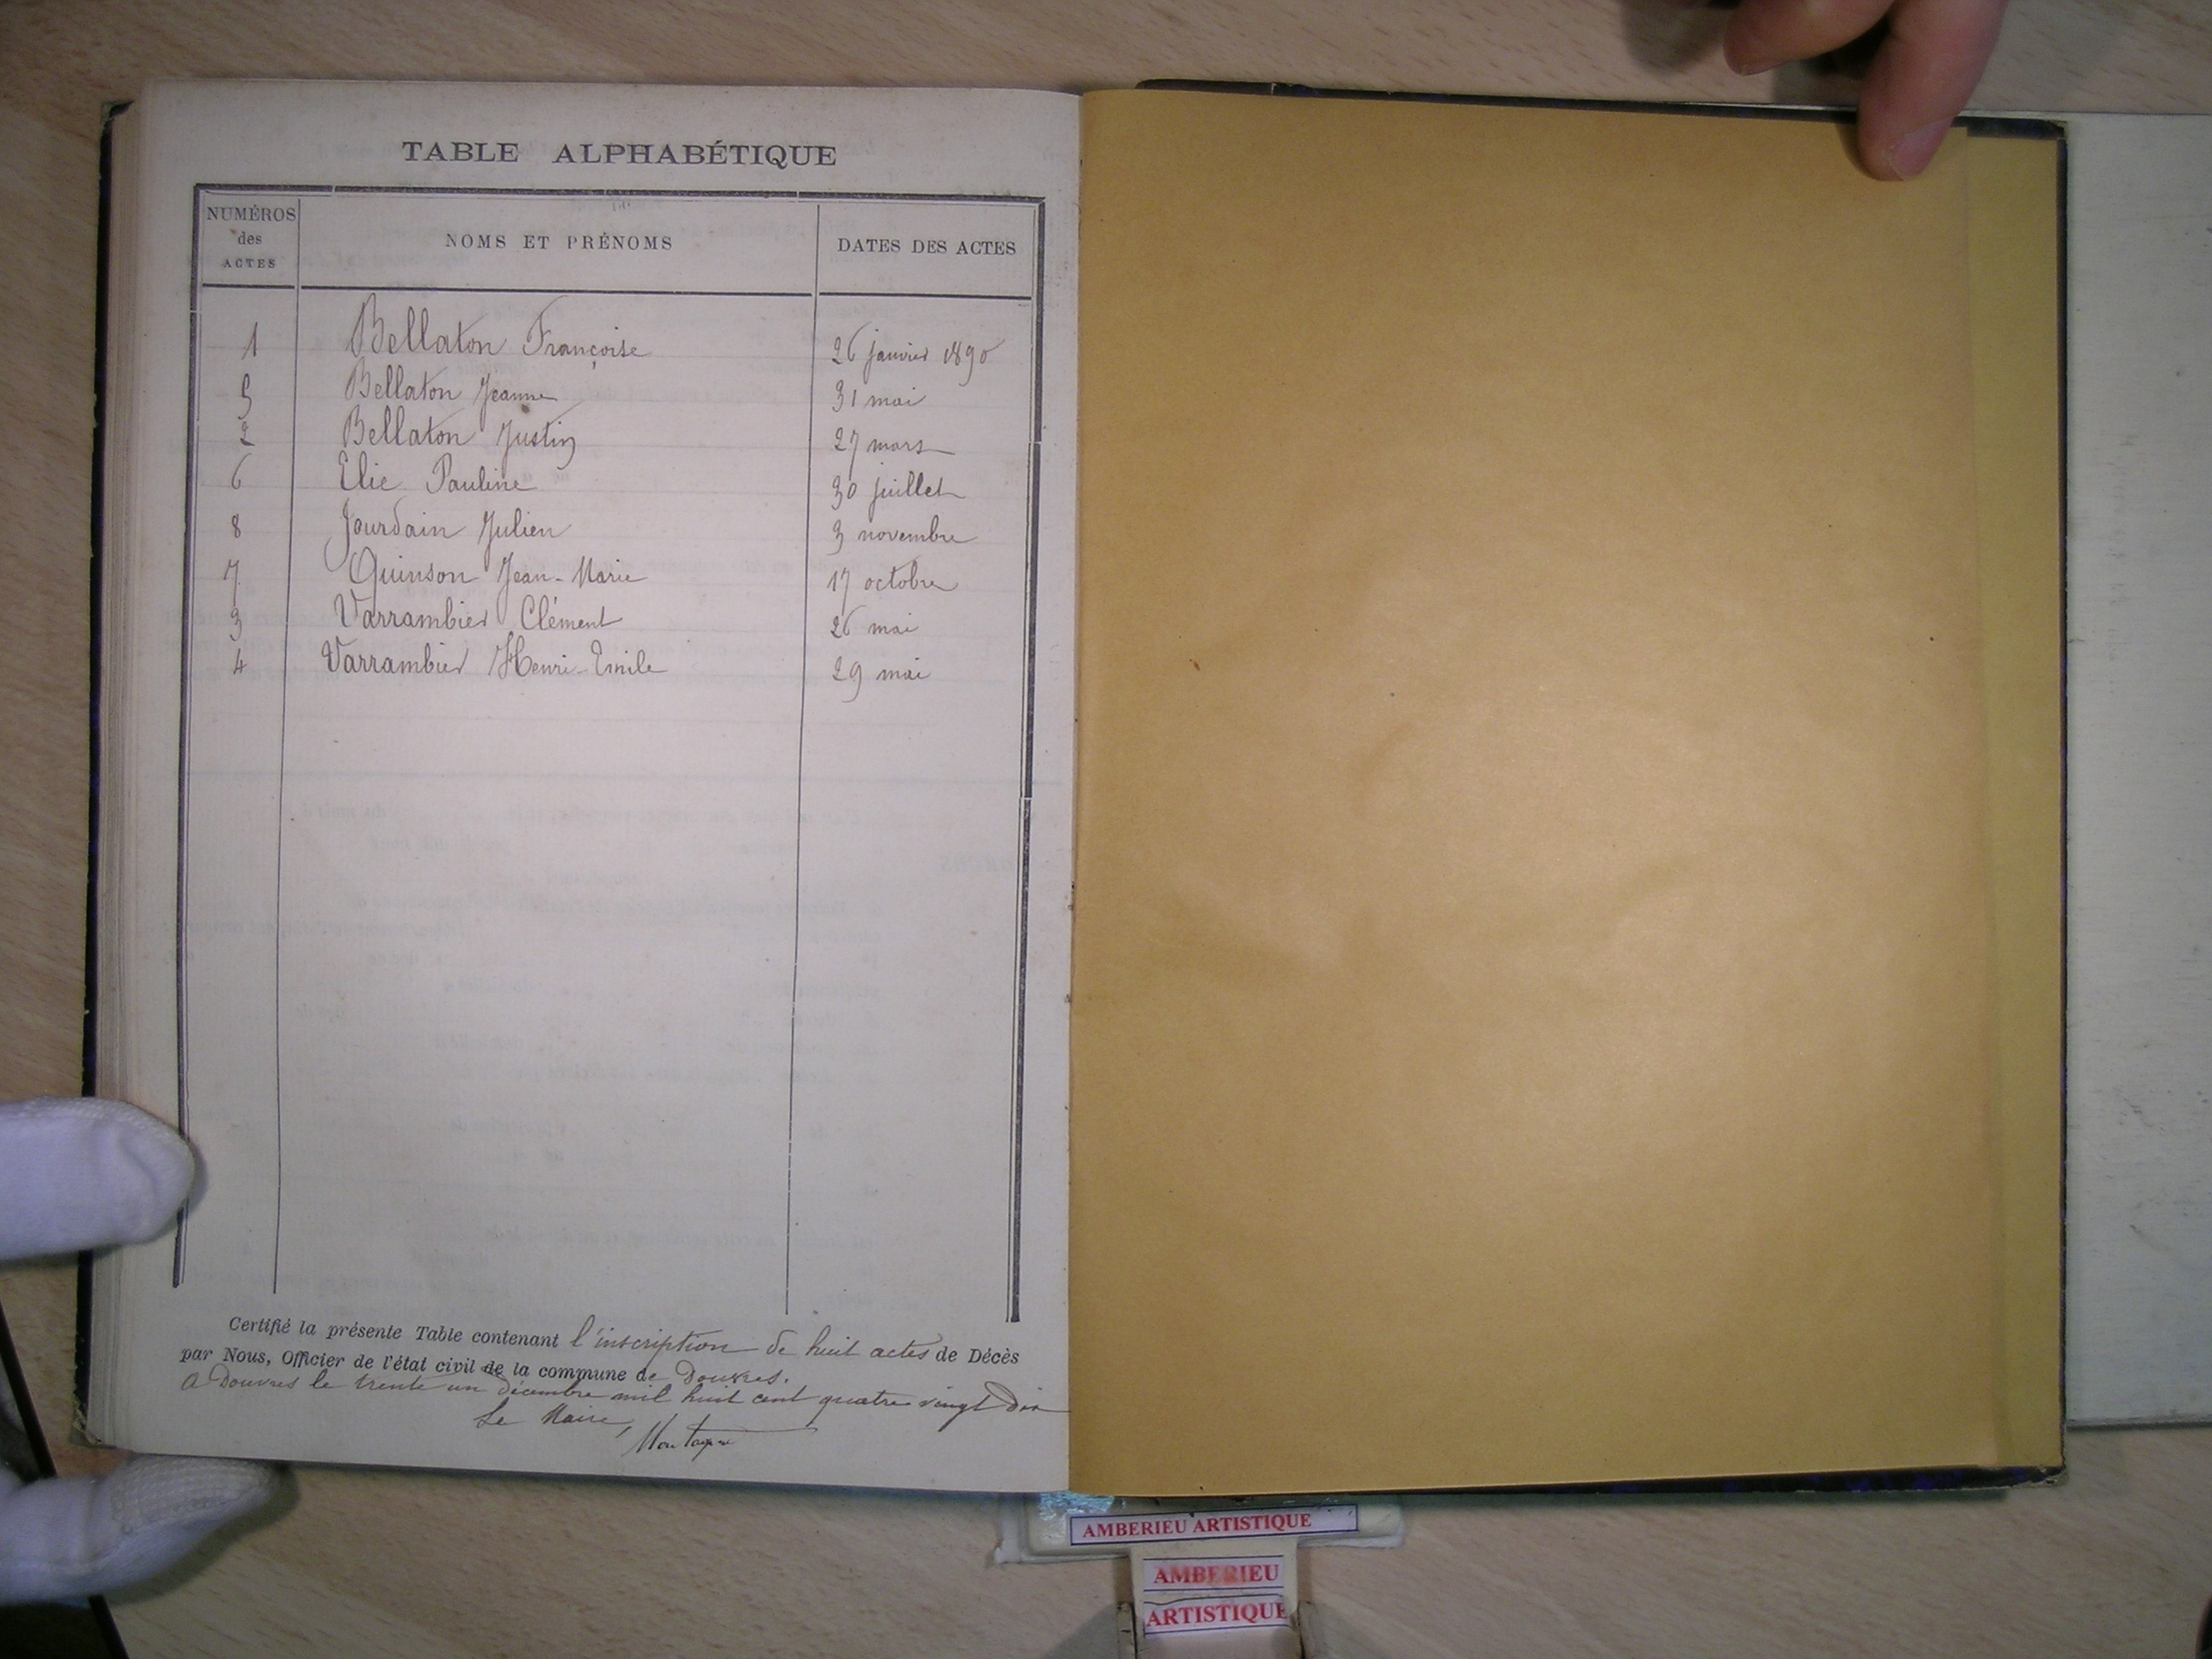 TABLE ALPHABÉTIQUE
NUMÉROS des ACTES NOMS ET PRÉNOMS DATES DES ACTES
1 Bellaton Françoise 26 janvier 1890
5 Bellaton Jeanne 31 mai
2 Bellaton Justin 27 mars
6 Elie Pauline 30 juillet
8 Jourdain Julien 3 novembre
7 Quinson Jean-Marie 17 octobre
3 Varrambier Clément 26 mai
4 Varrambier Henri-Emile 29 mai
Certifié la présente Table contenant l'inscription de huit actes de Décès
par Nous, Officier de l'état civil de la commune de Douvres.
A Douvres le trente un décembre mil huit cent quatre vingt dix
Le Maire,
AMBERIEU ARTISTIQUE
AMBERIEU
ARTISTIQUE